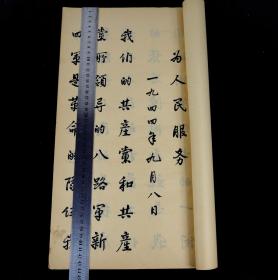 为人民服务
一九四四年九月八日
我们的共产党和共产
党所领导的八路军新
四军是革命的队伍我